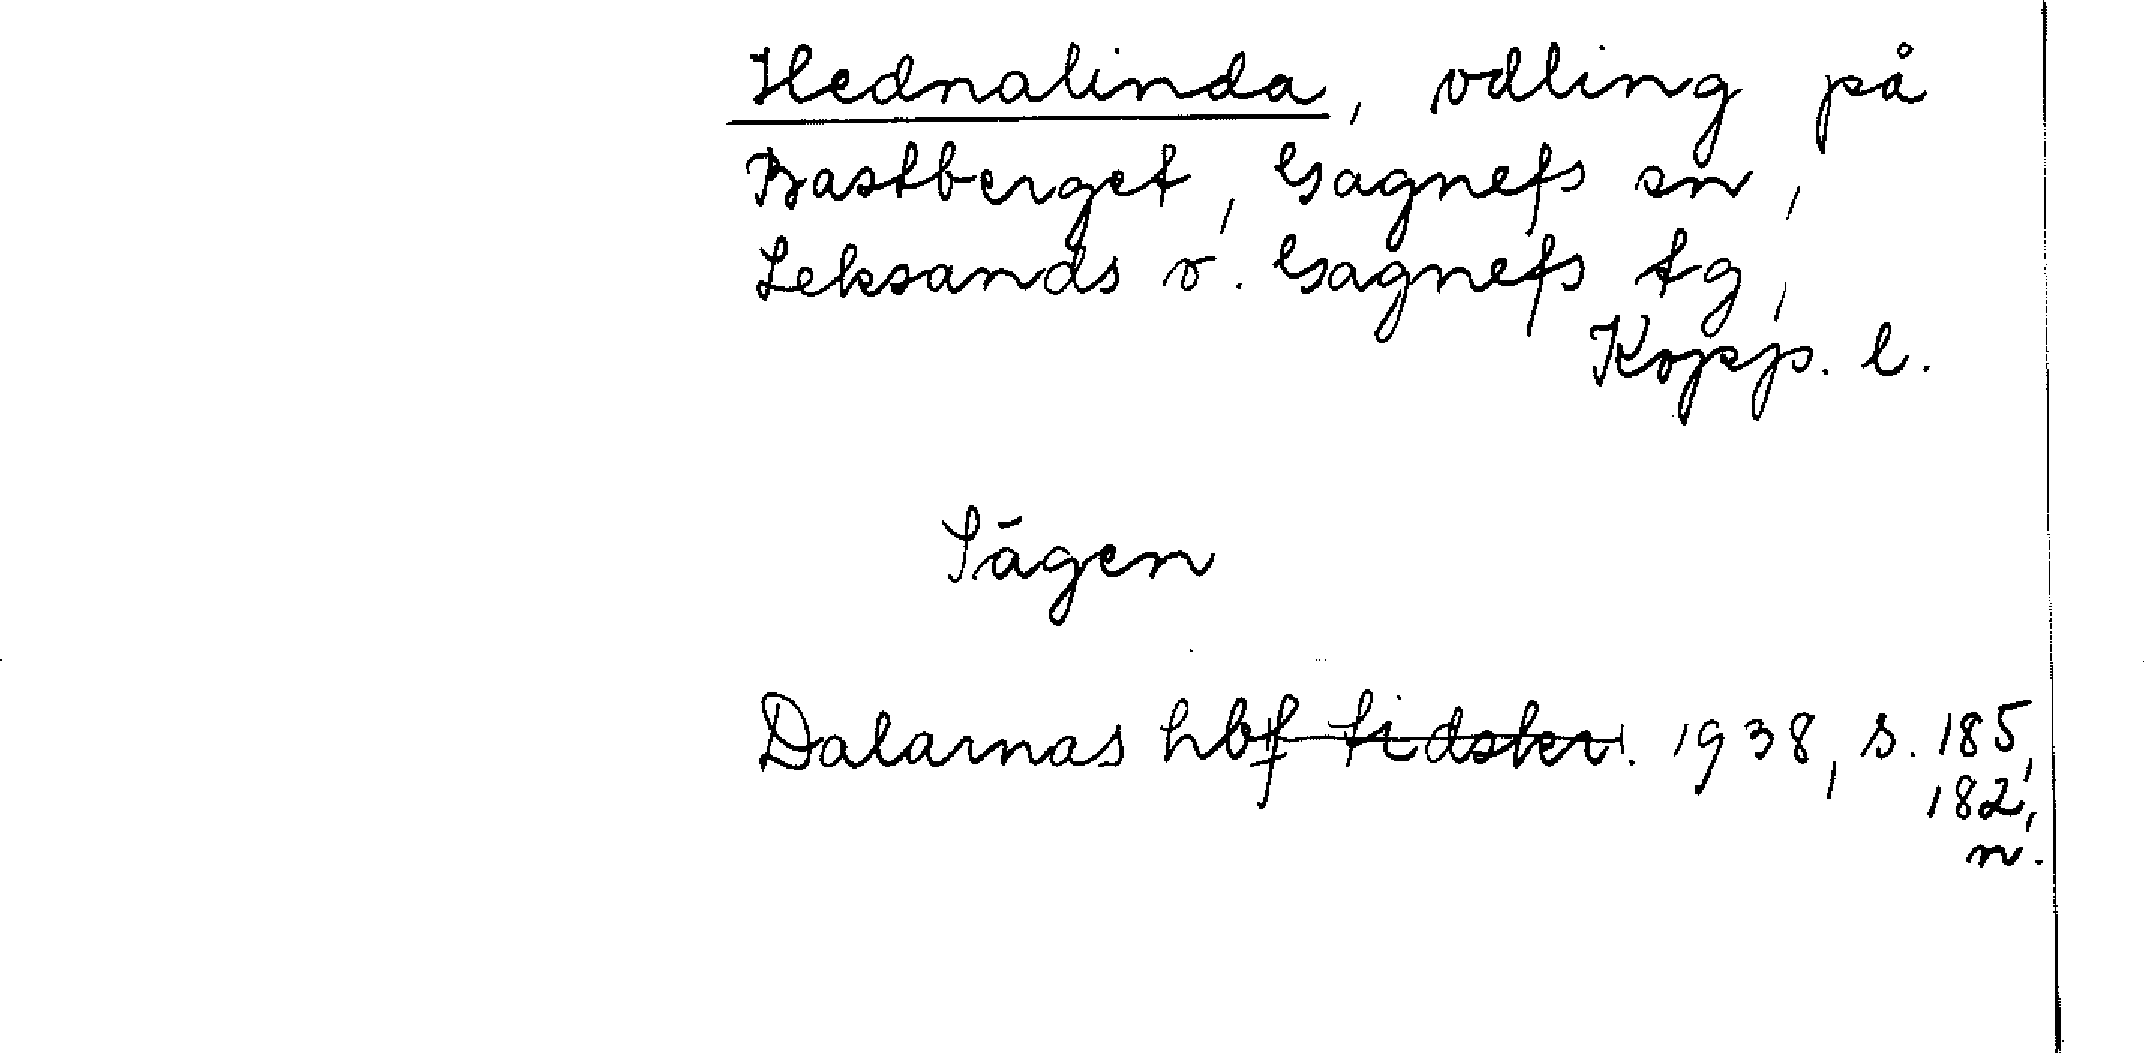 Hednalinda, odling på
Bastberget, Gagnefs sn,
Leksands o. Gagnefs tg,
Kopp. l.
Sägen
Dalarnas hbf tidskr. 1938, s. 185,
182,
n.